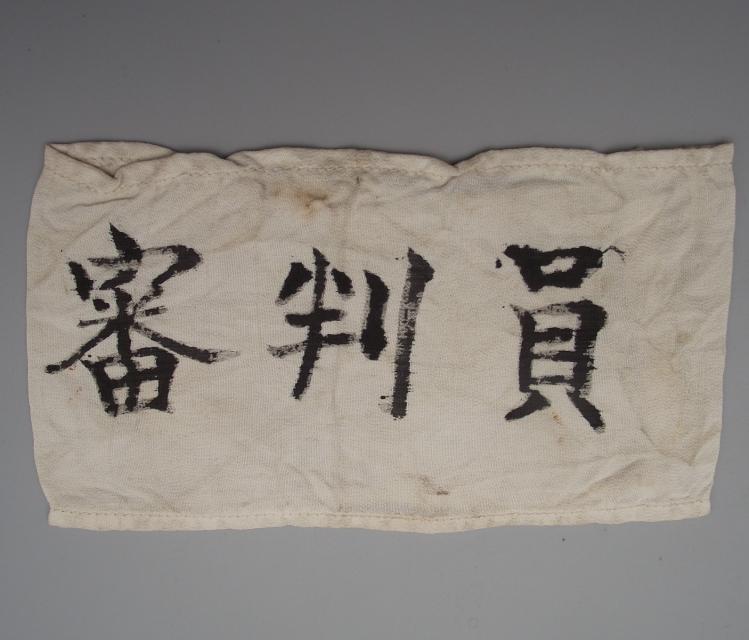 審判員